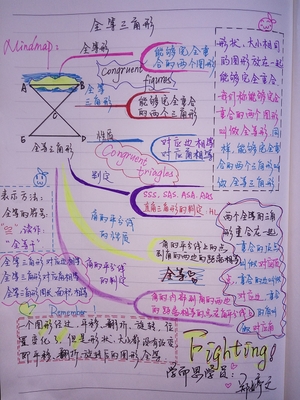 全等三角形
Mindmap:
全等形
能够完全重
合的两个图形
Congruent
figures
全等
三角形
能够完全重合
的两个三角形
性质
对应边相等
对应角相等
Congruent
tringles
全等三角形
判定
SSS, SAS, ASA, AAS
直角三角形的判定 HL
角的平分线
的性质
角的平分线上的点
到角的两边的距离相等
角的平分线
的判定
角的内部到角的两边的
形状、大小相同
的图形放在一起
能够完全重合
能够完全重合
的两个图形
叫做全等形
能够完全重合
的两个三角形
叫做全等三角形
表示方法:
全等的符号:
"≌", 读作:
"全等于"
全等三角形对应边相等
全等三角形对应角相等
全等三角形周长、面积相等
两个全等的三角
形重合在一起
重合的顶点
叫做对应顶点
重合的边
叫做对应边
重合的角
叫做对应角
全等≌
Remember
一个图形经过平移、翻折、旋转,位
置变化了,但是形状、大小都没有改变
即平移、翻折、旋转后的图形全等
Fighting!
学而思学员: